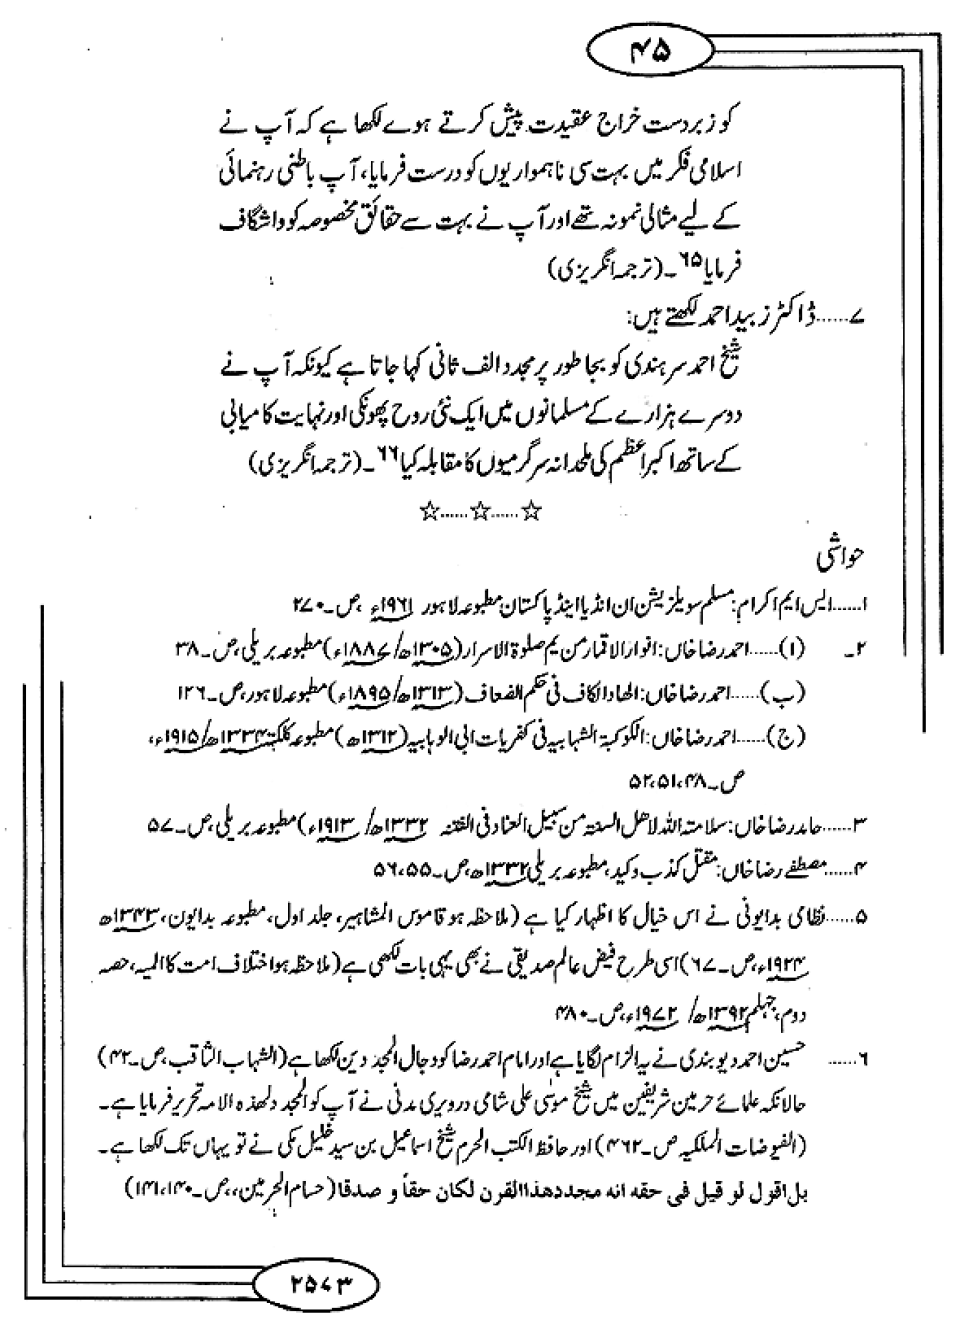 ۴۵
کو زبردست خراج عقیدت پیش کرتے ہوے لکھا ہے کہ آپ نے
اسلامی فکر میں بہت سی ناہمواریوں کو درست فرمایا، آپ باطنی رہنمائی
کے لیے مثالی نمونہ تھے اور آپ نے بہت سے حقائق مخصوصہ کو واشگاف
فرمایا۶۵۔(ترجمہ انگریزی)
۷......ڈاکٹر زبید احمد لکھتے ہیں:
شیخ احمد سرہندی کو بجا طور پر مجدد الف ثانی کہا جاتا ہے کیونکہ آپ نے
دوسرے ہزارے کے مسلمانوں میں ایک نئی روح پھونکی اور نہایت کامیابی
کے ساتھ اکبر اعظم کی ملحدانہ سرگرمیوں کا مقابلہ کیا۶۶۔(ترجمہ انگریزی)
☆......☆......☆
حواشی
۱......ایس ایم اکرام: مسلم سویلزیشن ان انڈیا اینڈ پاکستان مطبوعہ لاہور ۱۹۶۱ء، ص۔۲۷۰
۲۔ (ا)......احمد رضا خاں: انوار الاقمار من یم صلوۃ الاسرار(۱۳۰۵ھ/۱۸۸۷ء) مطبوعہ بریلی، ص۔۳۸
(ب)......احمد رضا خاں: الھاد الکاف فی حکم الضعاف (۱۳۱۳ھ/۱۸۹۵ء) مطبوعہ لاہور، ص۔۱۲۶
(ج)......احمد رضا خاں: الکوکبۃ الشہابیہ فی کفریات ابی الوہابیہ (۱۳۱۲ھ) مطبوعہ کلکتہ ۱۳۳۴ھ/۱۹۱۵ء،
ص۔۴۸،۵۱،۵۲
۳......حامد رضا خاں: سلامتہ اللہ لاھل السنتہ من سبیل العناد فی الفتنہ ۱۳۳۲ھ/ ۱۹۱۳ء) مطبوعہ بریلی، ص۔۵۷
۴......مصطفے رضا خاں: مقتل کذب وکید، مطبوعہ بریلی ۱۳۳۲ھ، ص۔۵۵،۵۶
۵......نظامی بدایونی نے اس خیال کا اظہار کیا ہے (ملاحظہ ہو قاموس المشاہیر، جلد اول، مطبوعہ بدایون، ۱۳۴۳ھ
۱۹۲۴ء، ص۔۶۷) اسی طرح فیض عالم صدیقی نے بھی یہی بات لکھی ہے (ملاحظہ ہو اختلاف امت کا المیہ، حصہ
دوم، جہلم ۱۳۹۲ھ/ ۱۹۷۲ء، ص۔۴۸۰
۶...... حسین احمد دیوبندی نے یہ الزام لگایا ہے اور امام احمد رضا کو دجال المجددین لکھا ہے (الشہاب الثاقب، ص۔۴۲)
حالانکہ علمائے حرمین شریفین میں شیخ موسیٰ علی شامی درویری مدنی نے آپ کو المجدد لھذہ الامہ تحریر فرمایا ہے۔
(الفیوضات الملکیہ ص۔۴۶۲) اور حافظ الکتب الحرم شیخ اسماعیل بن سید خلیل مکی نے تو یہاں تک لکھا ہے۔
بل اقول لو قیل فی حقہ انہ مجدد ھذا القرن لکان حقاً و صدقا (حسام الحرمین،، ص۔۱۴۰،۱۴۱)
۲۵۷۳